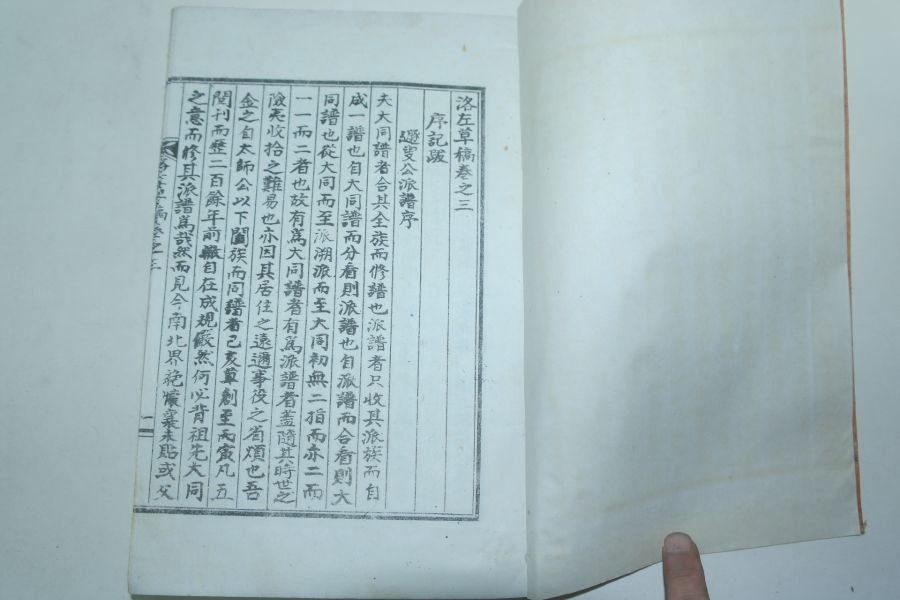 洛左草稿卷之三
序記跋
遯叟公派譜序
夫大同譜者合其全族而修譜也派譜者只收其派族而自
成一譜也自大同譜而分看則派譜也自派譜而合看則大
同譜也從大同而至派溯派而至大同初無二指而亦二而
一一而二者也故有爲大同譜者有爲派譜者盖隨其時世之
險夷收拾之難易也亦因其居住之遠邇事役之省煩也吾
金之自太師公以下闔族而同譜者己亥草創至丙寅凡五
閱刊而歷二百餘年前轍自在成規儼然何必背祖先大同
之意而修其派譜爲哉然而見今南北界挩氛未貼或父
洛左草稿卷之三
一